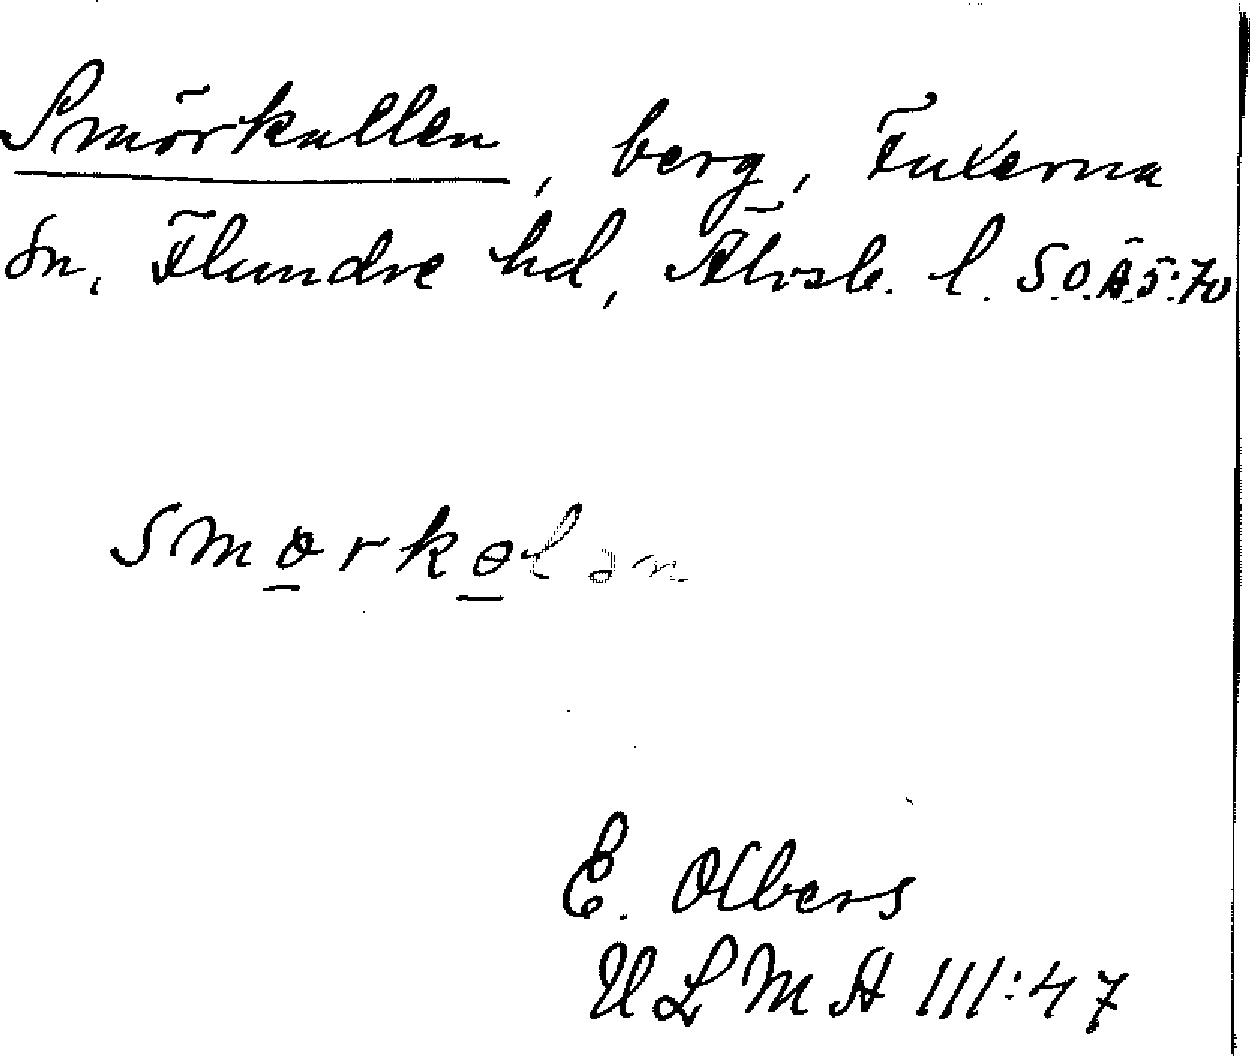 Smörkullen, berg, Fuxerna
sn, Flundre hd, Älvsb. l. S.O.Ä 5:70
smørkɵlən
E. Olbers
ULMA 111:47